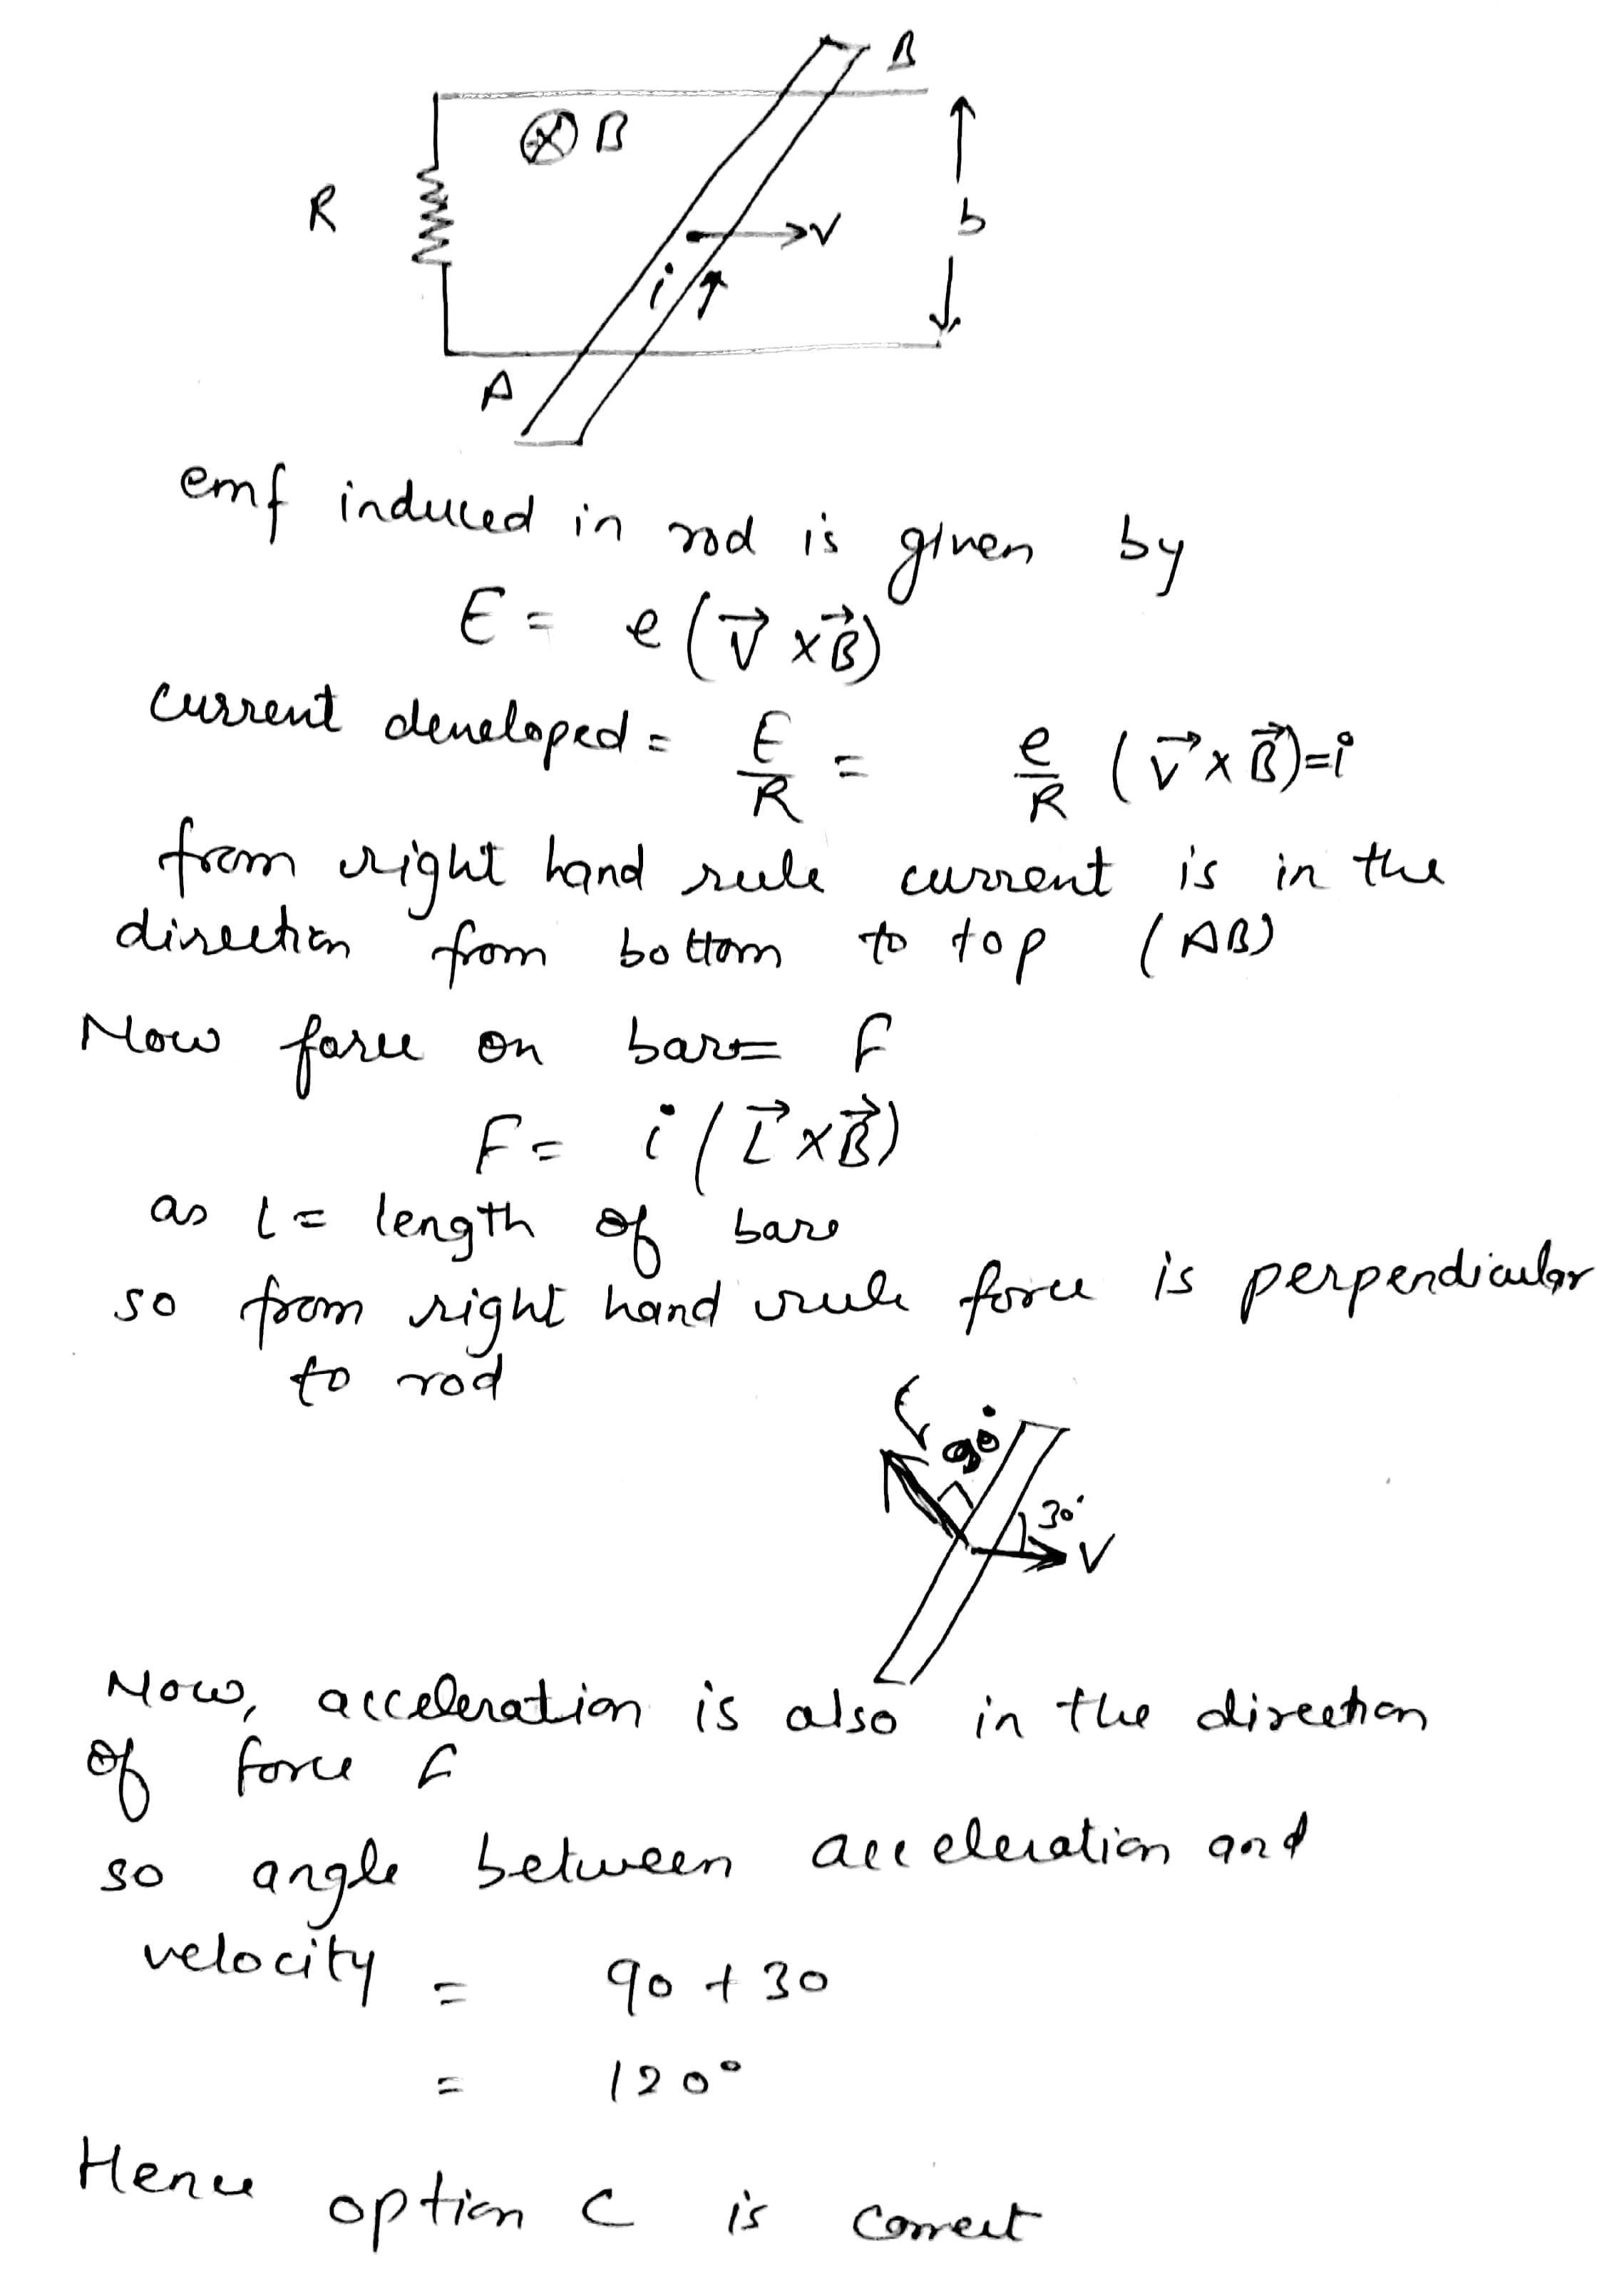 B
⊗ B
R
→V
b
i ↑
A
emf induced in rod is given by
E = e(V⃗ × B⃗)
current developed = E/R = e/R (V⃗ × B⃗) = i
from right hand rule current is in the
direction from bottom to top (AB)
Now force on bar = F
F = i(L⃗ × B⃗)
as l = length of bar
so from right hand rule force is perpendicular
to rod
F
90°
30°
V
Now, acceleration is also in the direction
of force F
so angle between acceleration and
velocity = 90 + 30
= 120°
Hence option C is correct